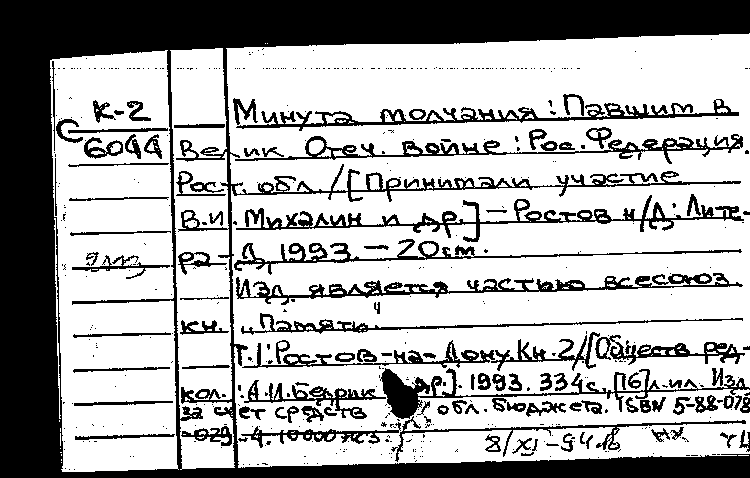 К-2
С 6044
Минута молчания : Павшим в
Велик. Отеч. войне : Рос. Федерация.
Рост. обл. / [Принимали участие
В.И. Михалин и др.] – Ростов н/Д : Лите-
ра-Д, 1993. – 20 см.
Изд. является частью всесоюз.
кн. „Память“
Т.1: Ростов-на-Дону. Кн. 2 / [Обществ. ред-
кол. : А.И. Бедрик др.]. 1993. 334 с., [16] л. ил. Изд.
за счет средств обл. бюджета. ISBN 5-88-078
-029-4. 10000 экз.
8/XI-94